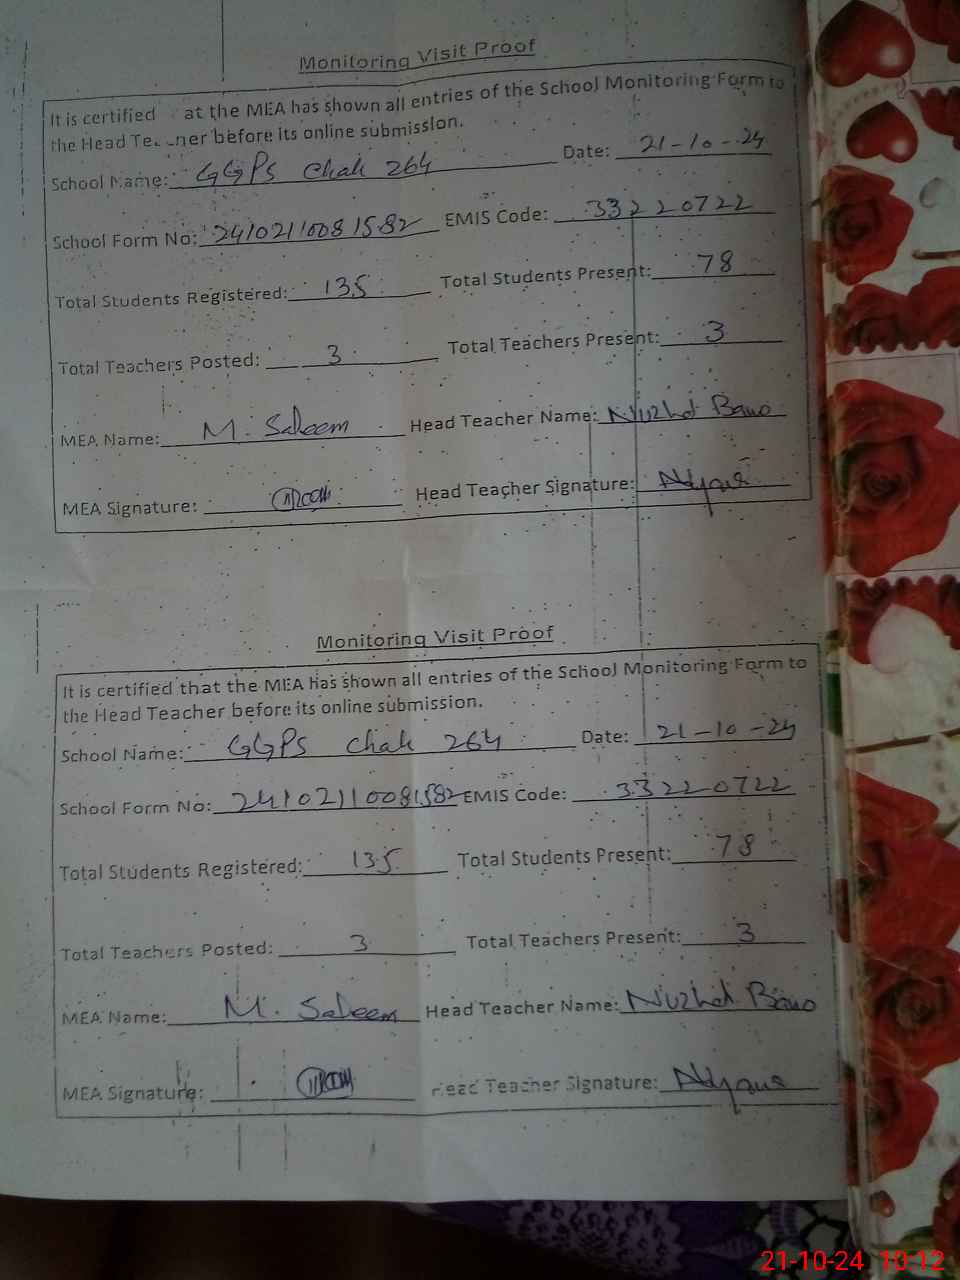 Monitoring Visit Proof
It is certified at the MEA has shown all entries of the School Monitoring Form to
the Head before its online submission.
School Name: GGPS Chak 264 Date: 21-10-24
School Form No: 24102110081582 EMIS Code: 33220722
Total Students Registered: 135 Total Students Present: 78
Total Teachers Posted: 3 Total Teachers Present: 3
MEA Name: M. Saleem Head Teacher Name: Nuzhat Bano
MEA Signature: Head Teacher Signature:
Monitoring Visit Proof
It is certified that the MEA has shown all entries of the School Monitoring Form to
the Head Teacher before its online submission.
School Name: GGPS Chak 264 Date: 21-10-24
School Form No: 24102110081582 EMIS Code: 33220722
Total Students Registered: 135 Total Students Present: 78
Total Teachers Posted: 3 Total Teachers Present: 3
MEA Name: M. Saleem Head Teacher Name: Nuzhat Bano
MEA Signature: Head Teacher Signature:
21-10-24 10:12